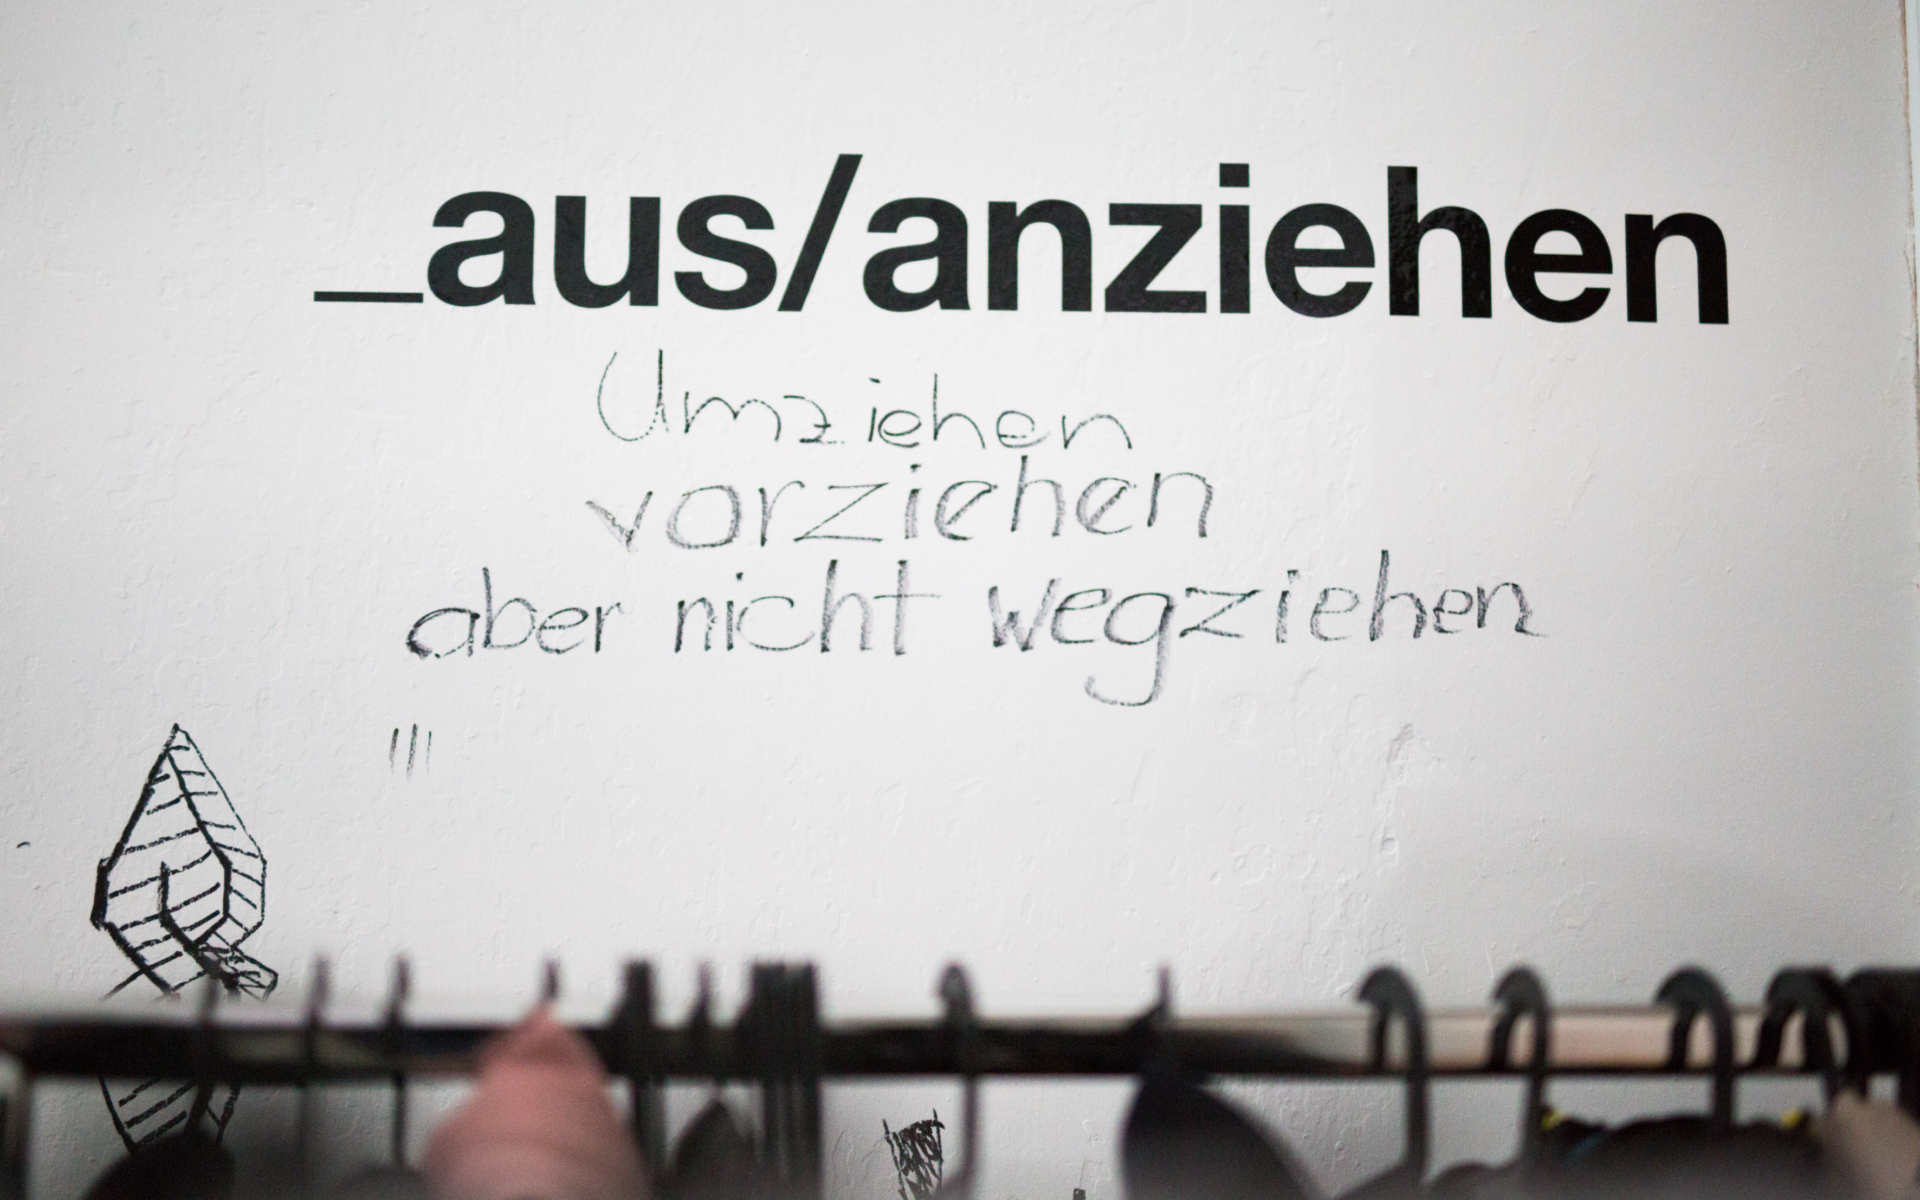 _aus/anziehen
Umziehen
vorziehen
aber nicht wegziehen